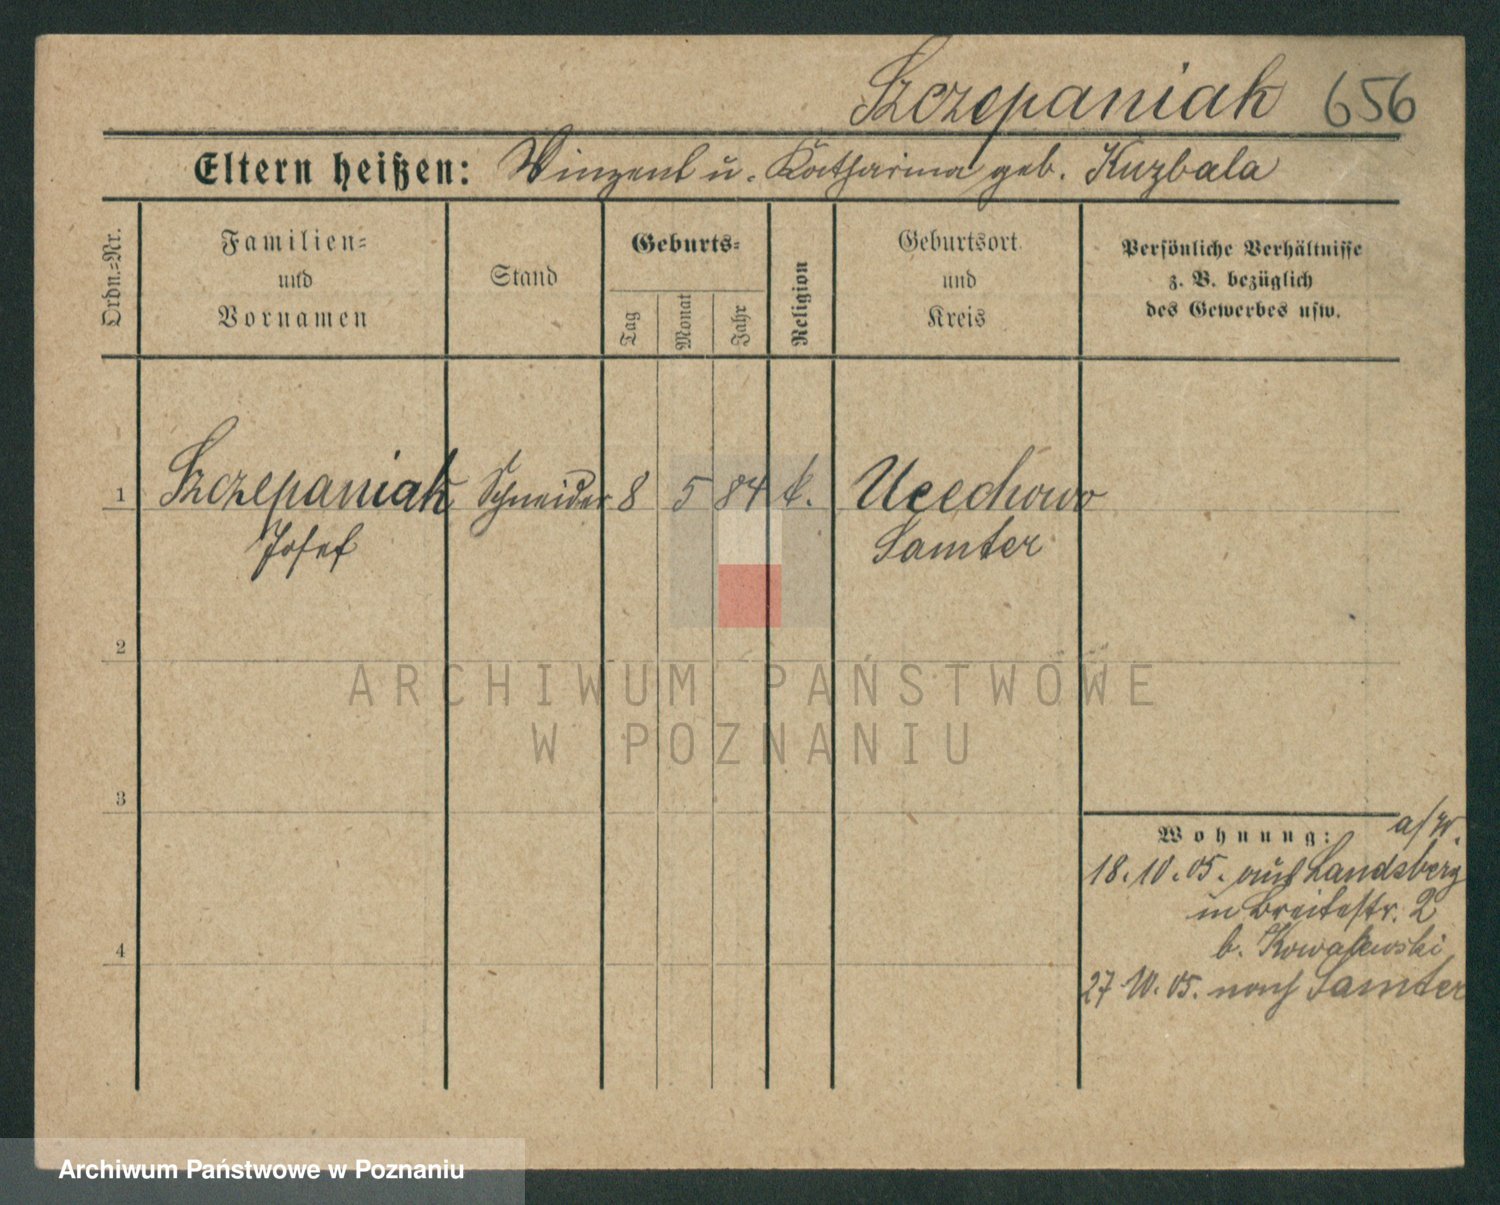 Szczepaniak 656
Eltern heißen: Winzent u. Katharina geb. Kuzbala
Ordn.=Nr.
Familien=
und
Vornamen
Stand
Geburts=
Tag
Monat
Jahr
Religion
Geburtsort
und
Kreis
Persönliche Verhältnisse
z. B. bezüglich
des Gewerbes usw.
1 Szczepaniak Schneider 8 5 84 k. Ucechowo
Josef Samter
2
ARCHIWUM PAŃSTWOWE
W POZNANIU
3
Wohnung: a/W.
18.10.05. aus Landsberg
in Breitestr. 2
b. Kowalewski
4
27 10. 05. nach Samter
Archiwum Państwowe w Poznaniu